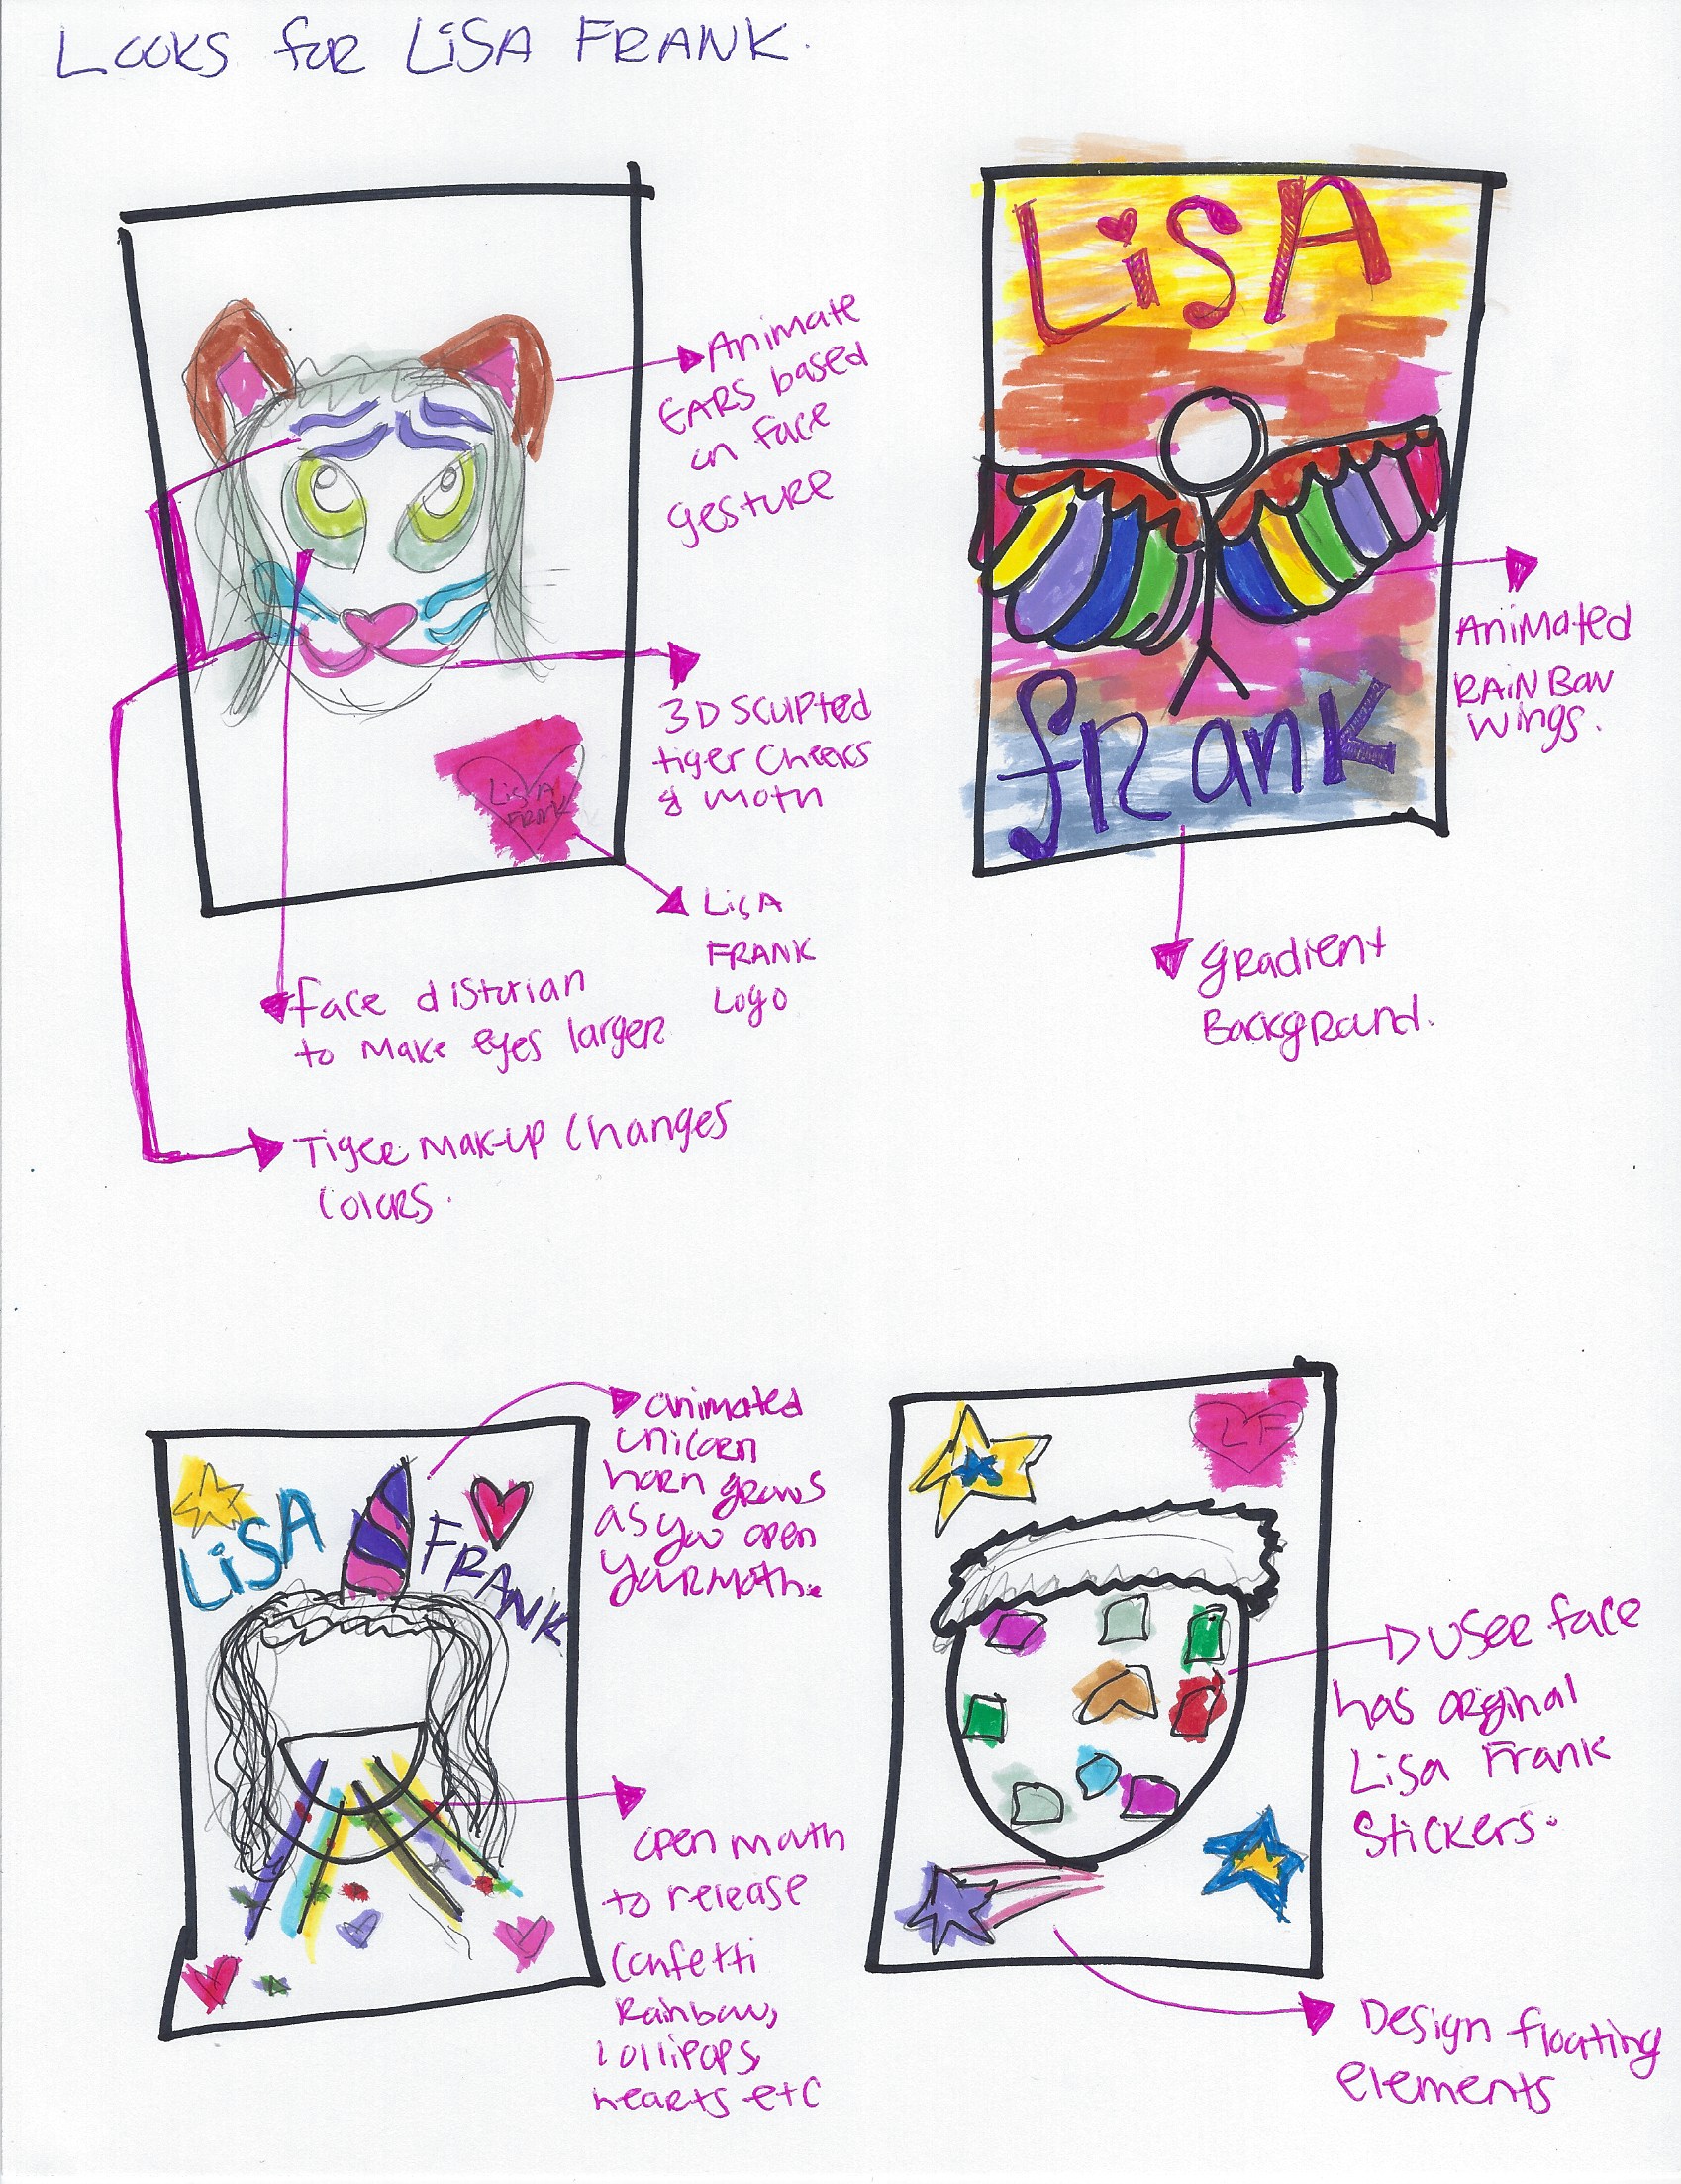 LOOKS for LiSA FRANK.
Animate
EARS based
on face
gesture
3D Sculpted
tiger Cheeks
& Moth
LiSA
FRANK
LiSA
FRANK
Logo
face distorian
to Make eyes larger
Tiger Mak-up Changes
Colors.
LiSA
fRanK
AniMated
RAiNBOW
Wings.
gRadient
BackgRound.
LiSA
FRANK
animated
Unicorn
horn grows
as you open
YouR Moth.
Open mouth
to release
Confetti
Rainbows,
lollipops,
hearts etc
LF
User face
has orginal
Lisa Frank
Stickers.
Design floating
elements